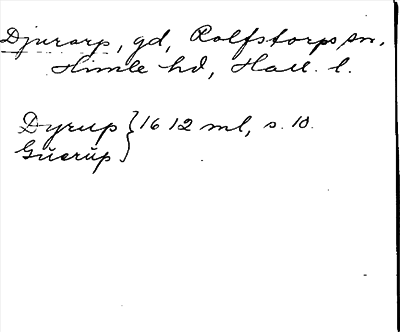 Djurarp, gd, Rolfstorps sn,
Himle hd, Hall. l.
Dyrup } 1612 ml, s. 10.
Guerup